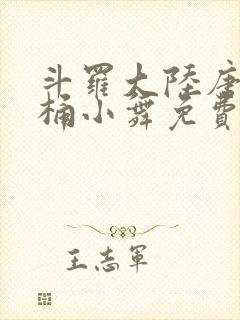 斗羅大陸唐
桶小舞免費
王志軍